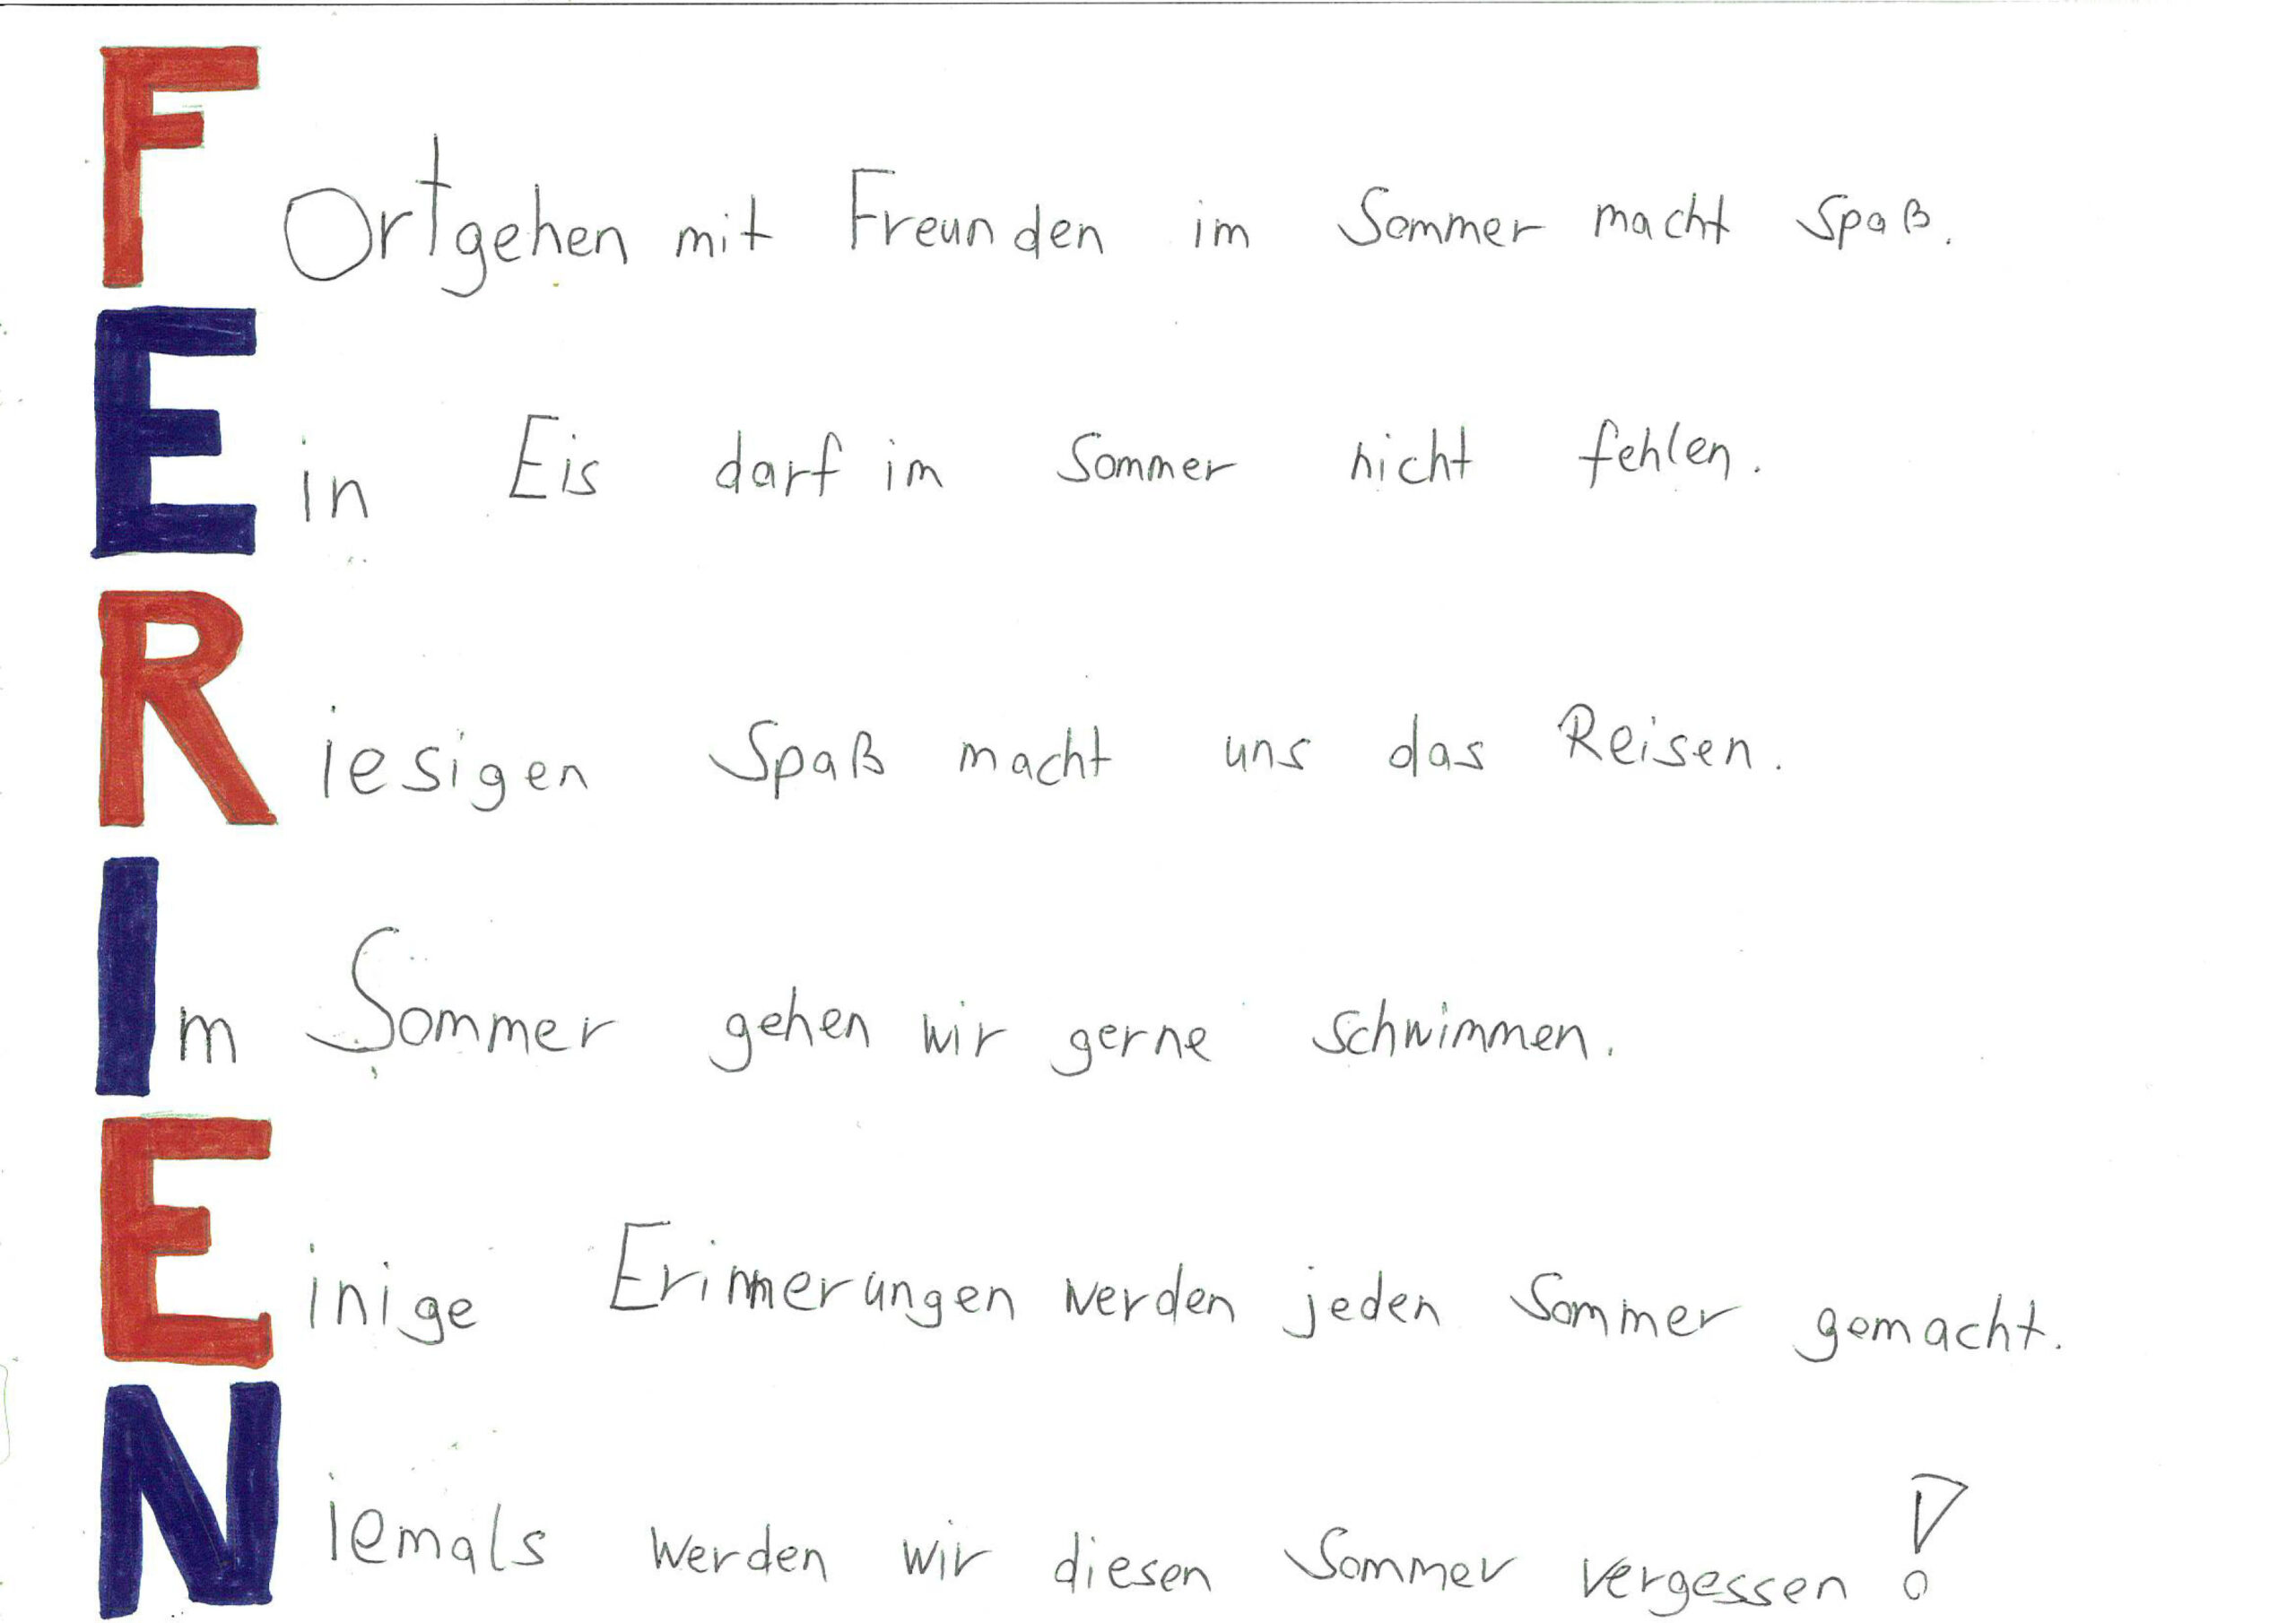 FOrtgehen mit Freunden im Sommer macht Spaß.
Ein Eis darf im Sommer nicht fehlen.
Riesigen Spaß macht uns das Reisen.
Im Sommer gehen wir gerne schwimmen.
Einige Erinnerungen werden jeden Sommer gemacht.
Niemals werden wir diesen Sommer vergessen!